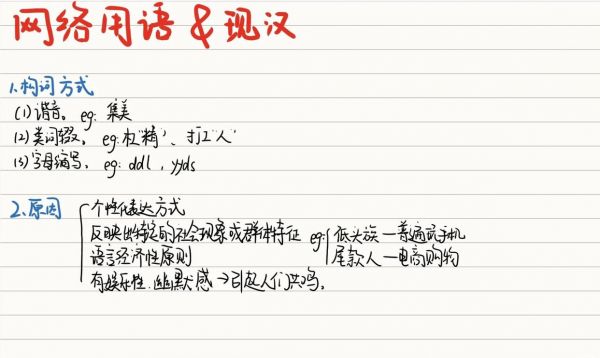 网络用语 & 现汉
1.构词方式
(1)谐音。eg:集美
(2)类词缀。eg:杠"精"、打工"人"
(3)字母缩写。eg:ddl,yyds
2.原因
个性化表达方式
反映出特定的社会现象或群体特征 eg:低头族—普遍玩手机
语言经济性原则 尾款人—电商购物
有娱乐性.幽默感→引起人们共鸣。